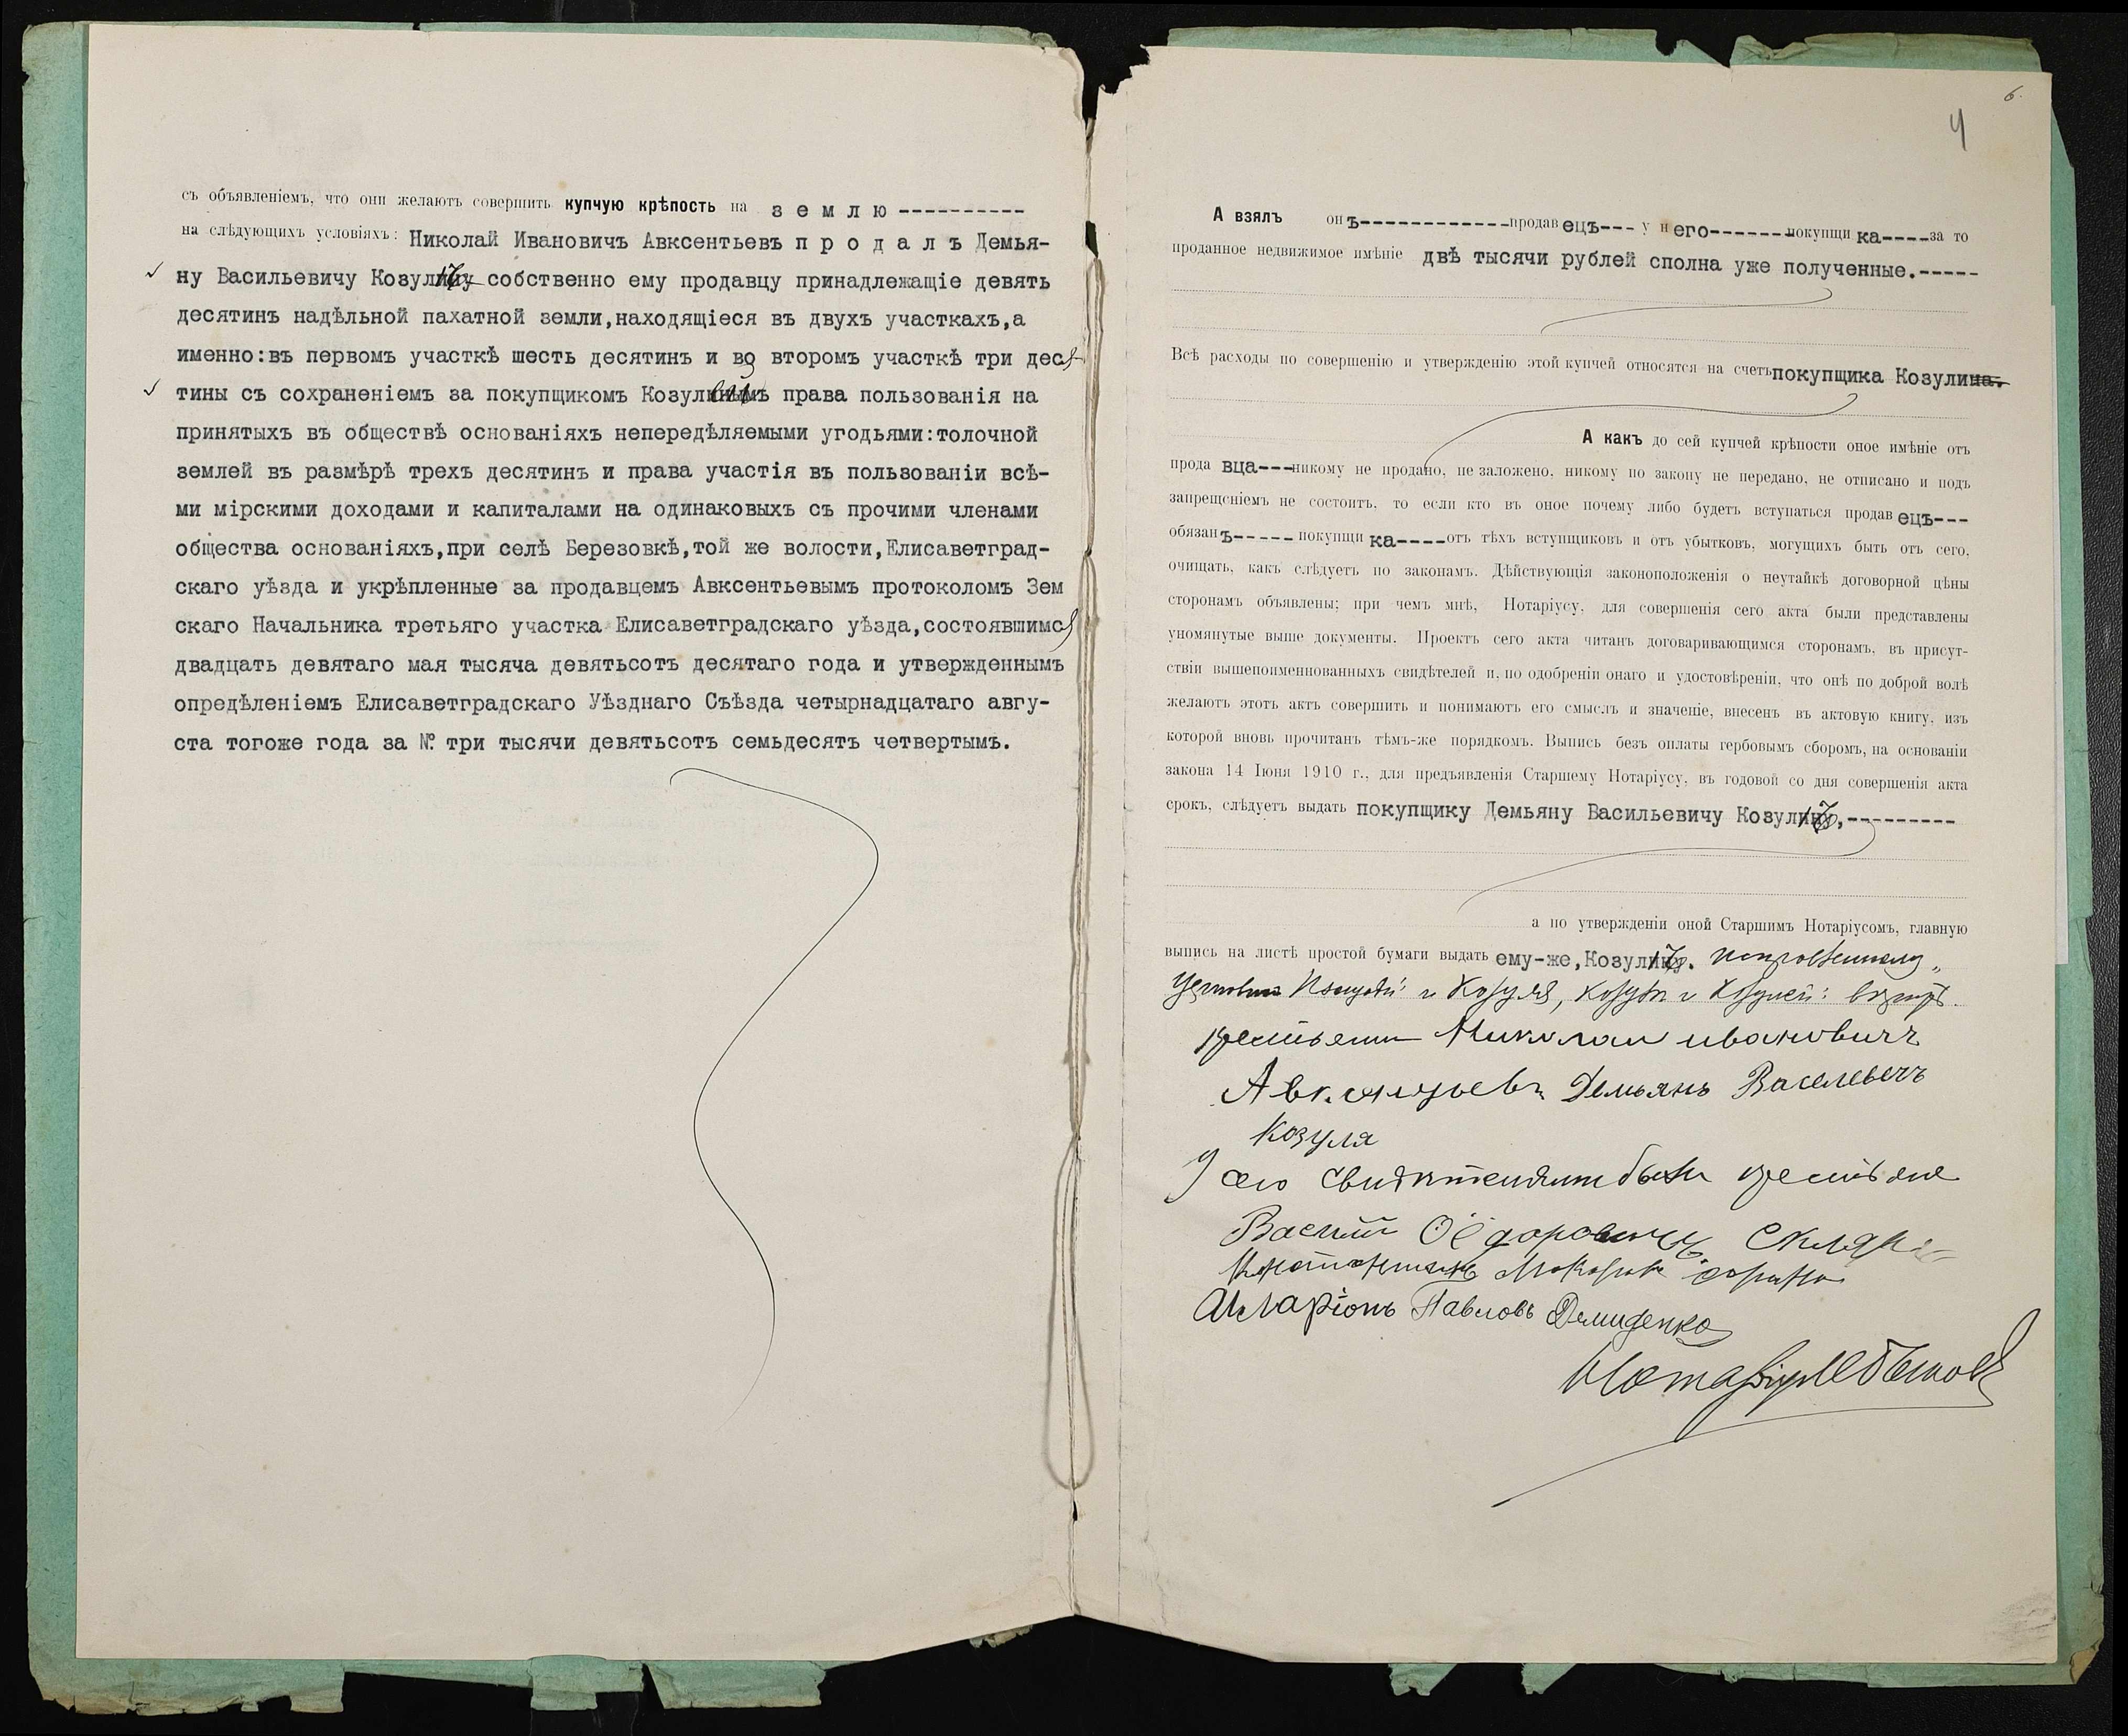 съ объявленіемъ, что они желаютъ совершить купчую крѣпость на з е м л ю ----------
на слѣдующихъ условіяхъ: Николай Ивановичъ Авксентьевъ п р о д а л ъ Демья-
ну Васильевичу Козулѣ собственно ему продавцу принадлежащіе девять
десятинъ надѣльной пахатной земли,находящіеся въ двухъ участкахъ,а
именно:въ первомъ участкѣ шесть десятинъ и во второмъ участкѣ три деся-
тины съ сохраненіемъ за покупщикомъ Козулей права пользованія на
принятыхъ въ обществѣ основаніяхъ непередѣляемыми угодьями:толочной
землей въ размѣрѣ трехъ десятинъ и права участія въ пользованіи всѣ-
ми мірскими доходами и капиталами на одинаковыхъ съ прочими членами
общества основаніяхъ,при селѣ Березовкѣ,той же волости,Елисаветград-
скаго уѣзда и укрѣпленные за продавцемъ Авксентьевымъ протоколомъ Зем
скаго Начальника третьяго участка Елисаветградскаго уѣзда,состоявшимся
двадцать девятаго мая тысяча девятьсотъ десятаго года и утвержденнымъ
опредѣленіемъ Елисаветградскаго Уѣзднаго Съѣзда четырнадцатаго авгу-
ста тогоже года за № три тысячи девятьсотъ семьдесятъ четвертымъ.
6.
4
А взялъ онъ------------продавецъ--- у него-------покупщика----за то
проданное недвижимое имѣніе двѣ тысячи рублей сполна уже полученные.-----
Всѣ расходы по совершенію и утвержденію этой купчей относятся на счетъ покупщика Козулина.
А какъ до сей купчей крѣпости оное имѣніе отъ
продавца---никому не продано, не заложено, никому по закону не передано, не отписано и подъ
запрещеніемъ не состоитъ, то если кто въ оное почему либо будетъ вступаться продавецъ---
обязанъ----- покупщика----отъ тѣхъ вступщиковъ и отъ убытковъ, могущихъ быть отъ сего,
очищать, какъ слѣдуетъ по законамъ. Дѣйствующія законоположенія о неутайкѣ договорной цѣны
сторонамъ объявлены; при чемъ мнѣ, Нотаріусу, для совершенія сего акта были представлены
упомянутые выше документы. Проектъ сего акта читанъ договаривающимся сторонамъ, въ присут-
ствіи вышепоименнованныхъ свидѣтелей и, по одобреніи онаго и удостовѣреніи, что онѣ по доброй волѣ
желаютъ этотъ актъ совершить и понимаютъ его смыслъ и значеніе, внесенъ въ актовую книгу, изъ
которой вновь прочитанъ тѣмъ-же порядкомъ. Выпись безъ оплаты гербовымъ сборомъ, на основаніи
закона 14 Іюня 1910 г., для предъявленія Старшему Нотаріусу, въ годовой со дня совершенія акта
срокъ, слѣдуетъ выдать покупщику Демьяну Васильевичу Козулѣ,---------
а по утвержденіи оной Старшимъ Нотаріусомъ, главную
выпись на листѣ простой бумаги выдать ему-же,Козулѣ.
и Козуля, Козулѣ и Козулей:
Николаи ивановичъ
Демьянъ Васелевечъ
Козуля
сего были
Ѳедоровичъ
Павловъ Демиденко